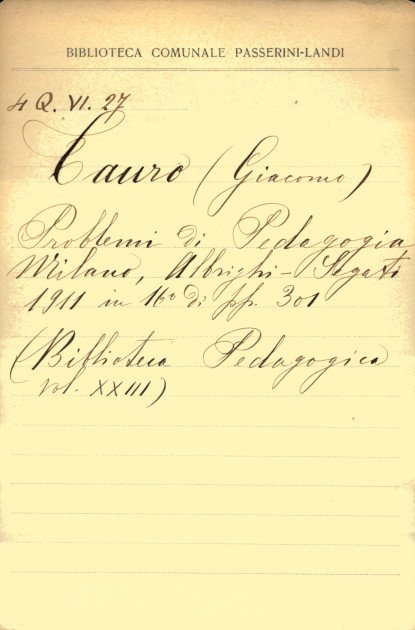 BIBLIOTECA COMUNALE PASSERINI-LANDI
4 Q. VI. 27
Tauro (Giacomo)
Problemi di Pedagogia
Milano, Albrighi-Segati
1911 in 16° di pp. 301
(Biblioteca Pedagogica
vol. XXIII)